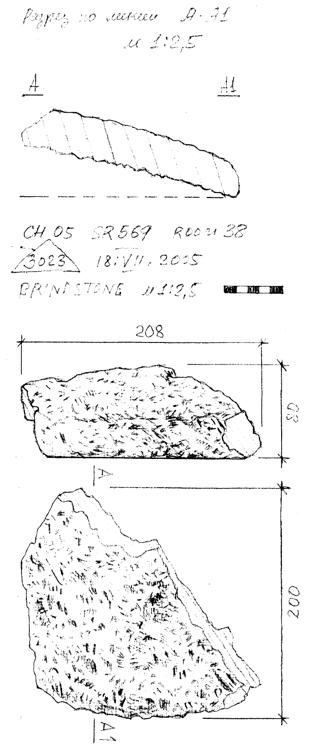 Разрез по линии А-А1
М 1:2,5
А А1
CH 05 SR 569 ROOM 38
3023 18.VII.2005
GRINDSTONE М 1:2,5
208
А
200
А1